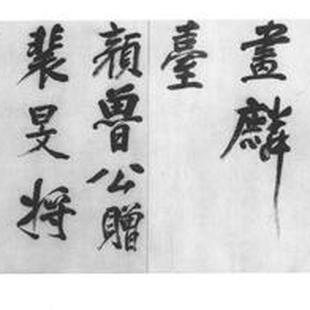 畫麟
臺
顏魯公贈
裴旻将